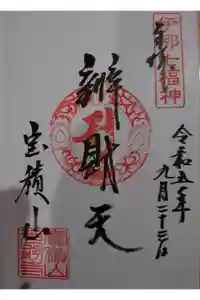 伊那七福神
令和五年
九月二十三日
辨財天
宝積山